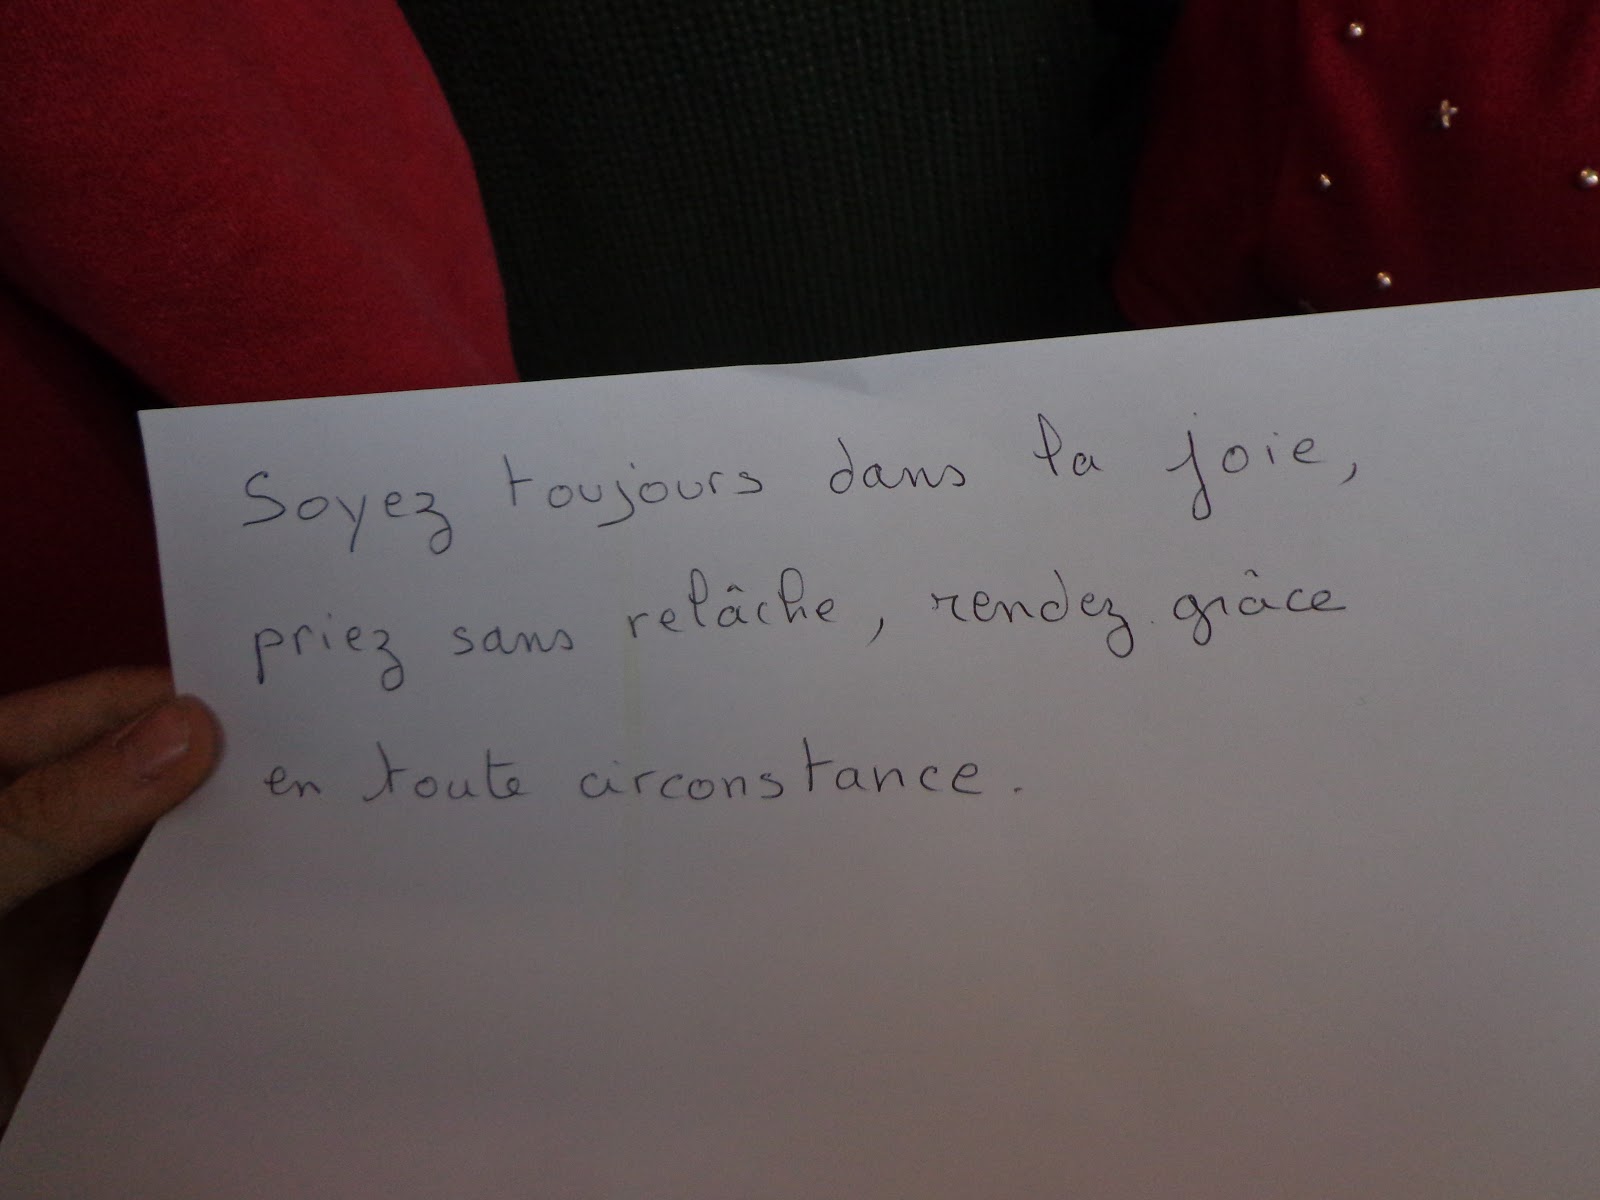 Soyez toujours dans la joie,
priez sans relâche, rendez grâce
en toute circonstance.